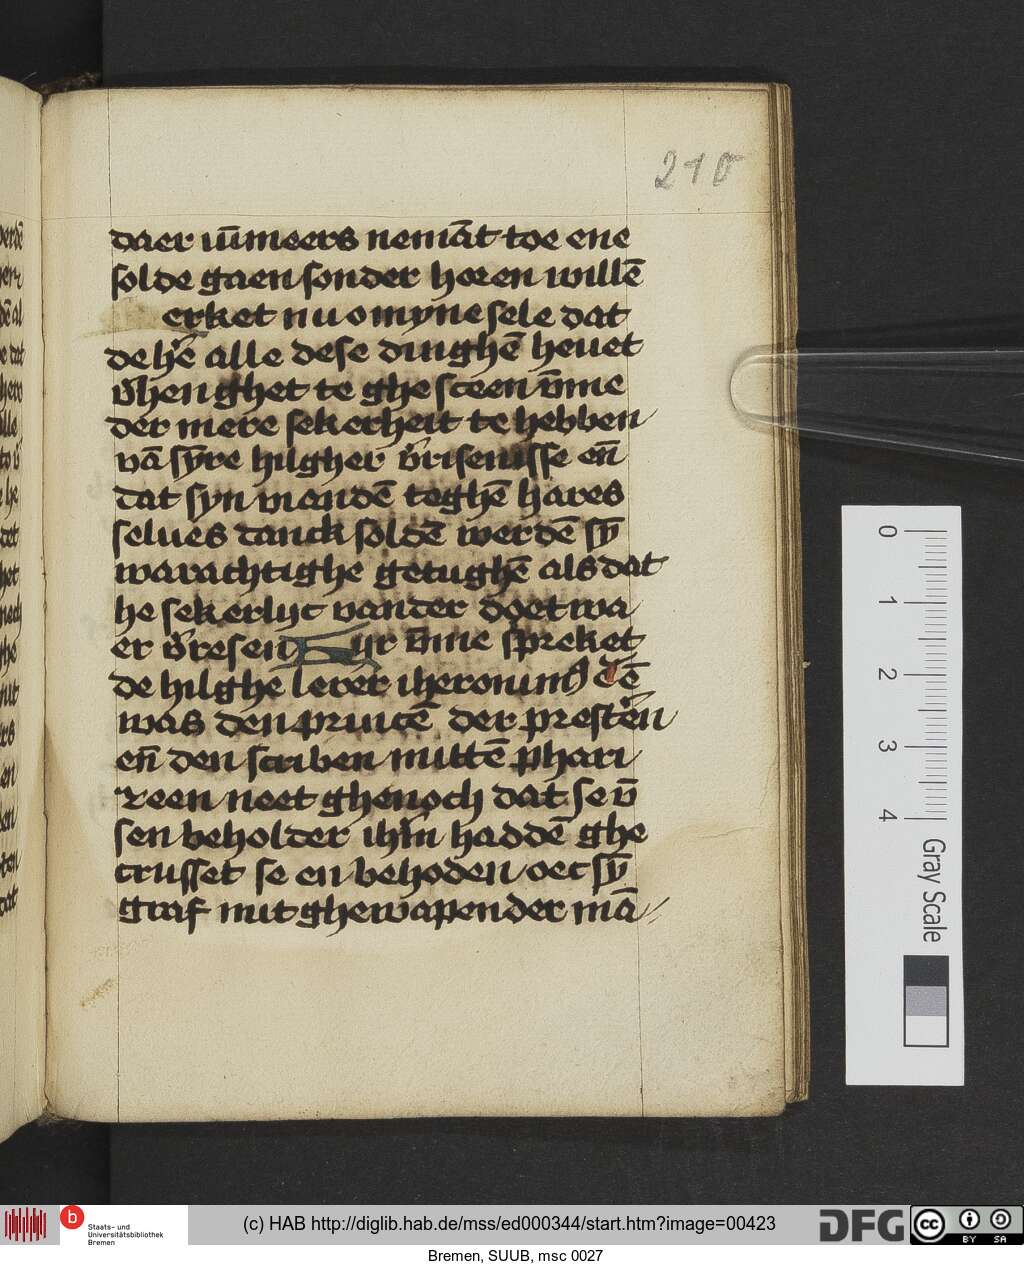 210
daer ūmeers nemāt toe ene
solde gaen sonder heren willē
erket nu o myne sele dat
de hr̄e alle dese dinghē heuet
v̄hen ghet te ghe sceen v̄me
der mere sekerheit te hebben
vā sȳre hilgher v̄risenisse eñ
dat syn viandē teghē hares
selues danck soldē werdē sȳ
warachtighe getughē als dat
he sekerlyc vander doet wa
er v̄resen yr v̄me spreket
de hilghe lerer iheronimꝰ
was den princē der prestēn
eñ den scriben mittē phari
zeen neet ghenoch dat se v̄
sen beholder ihm̄ haddē ghe
crusset se en behoden oec sȳ
graf mit ghewapender mā
0
1
2
3
4
Gray Scale
b Staats- und
Universitätsbibliothek
Bremen
(c) HAB http://diglib.hab.de/mss/ed000344/start.htm?image=00423
DFG
cc BY SA
Bremen, SUUB, msc 0027